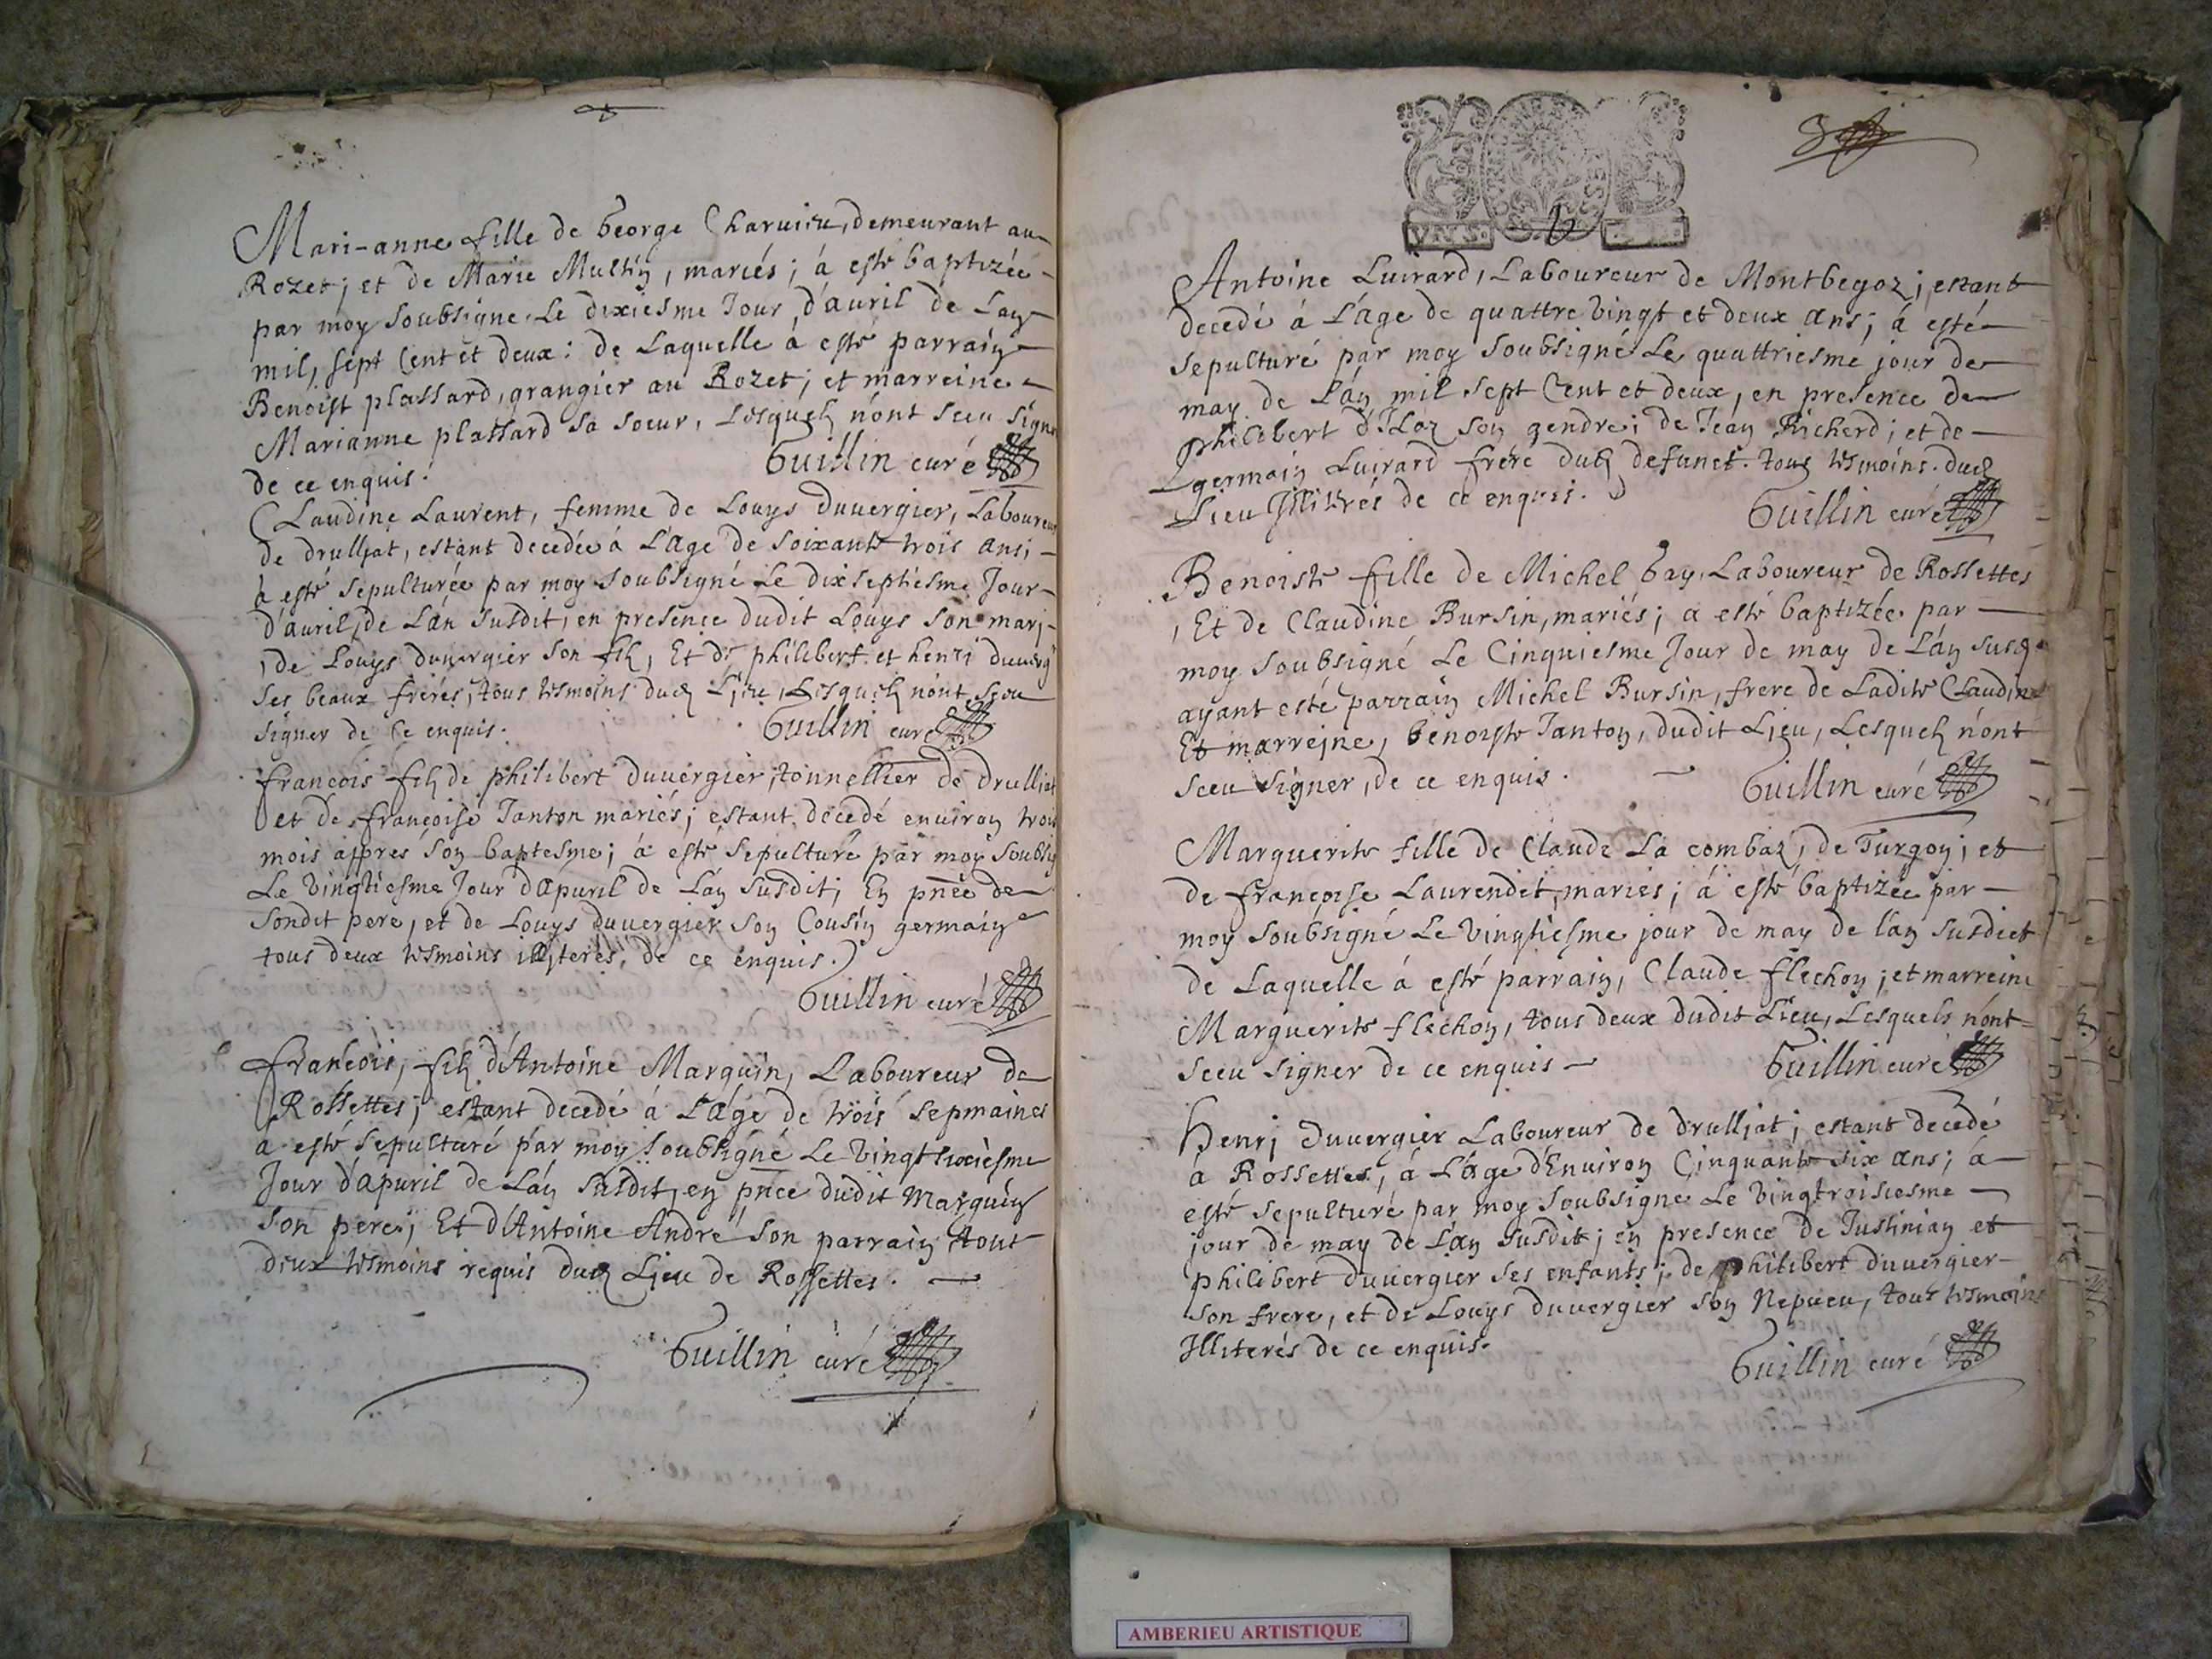 Mari-anne fille de George Charuieu, demeurant au
Rozet; et de Marie Multin, mariés; à esté baptizée
par moy soubsigné Le dixiesme Jour d'auril de Lan
mil, sept Cent et deux: de Laquelle à esté parrain
Benoist plassard, grangier au Rozet; et marreine
Marianne plassard sa soeur, Lesquels n'ont sceu signer
de ce enquis.
Guillin curé
Claudine Laurent, femme de Louys duuergier, Laboureur
de drulliat, estant decedée à L'age de soixante trois ans;
à esté sepulturée par moy soubsigné Le dixseptiesme Jour
d'auril, de L'an susdit, en presence dudit Louys son mari,
de Louys duuergier son fils, Et de philibert et henri duuerg
ses beaux freres, tous tesmoins dud Lieu, Lesquels n'ont sceu
signer de Ce enquis.
Guillin curé
françois fils de philibert duuergier, tonnellier de drulliat
et de françoise Tanton mariés; estant decedé enuiron trois
mois appres son baptesme; à esté sepulturé par moy soubsig
Le vingtiesme Jour d'apuril de L'an susdit; En pnce de
sondit pere, et de Louys duuergier son Cousin germain
tous deux tesmoins illiterés, de ce enquis.
Guillin curé
françois, fils d'Antoine Marquin, Laboureur de
Rossettes; estant decedé à L'age de trois sepmaines
à esté sepulturé par moy soubsigné Le vingtsixiesme
Jour d'apuril de L'an susdit, en pnce dudit Marquin
son pere; Et d'Antoine André son parrain tout
deux tesmoins requis dud Lieu de Rossettes.
Guillin curé
8
Antoine Luirard, Laboureur de Montbegoz; estant
decedé à L'age de quattre vingt et deux ans; à esté
sepulturé par moy soubsigné Le quattriesme jour de
may de L'an mil sept Cent et deux, en presence de
philibert d'Iloz son gendre; de Jean Richerd; et de
germain Luirard frere dud defunct. tous tesmoins dud
Lieu Illitérés de ce enquis.
Guillin curé
Benoiste fille de Michel Gay, Laboureur de Rossettes
, Et de Claudine Bursin, mariés; a esté baptizée par
moy soubsigné Le Cinquiesme Jour de may de L'an susd
ayant esté parrain Michel Bursin, frere de Ladite Claudine
Et marreine, benoiste Tanton, dudit Lieu, Lesquels n'ont
sceu signer, de ce enquis.
Guillin curé
Marguerite fille de Claude La combaz, de Turgon; et
de françoise Laurendet, mariés; à esté baptizée par
moy soubsigné Le vingtiesme jour de may de l'an susdict
de Laquelle à esté parrain, Claude flechon; et marreine
Marguerite flechon, tous deux dudit Lieu, Lesquels n'ont
sceu signer de ce enquis
Guillin curé
Henri duuergier Laboureur de drulliat; estant decedé
à Rossettes, à L'age d'Enuiron Cinquante six ans; à
esté sepulturé par moy soubsigné Le vingtroisiesme
jour de may de L'an susdit; en presence de Justinian et
philibert duuergier ses enfants; de philibert duuergier
son frere, et de Louys duuergier son Nepueu, tous tesmoins
Illiterés de ce enquis.
Guillin curé
AMBERIEU ARTISTIQUE